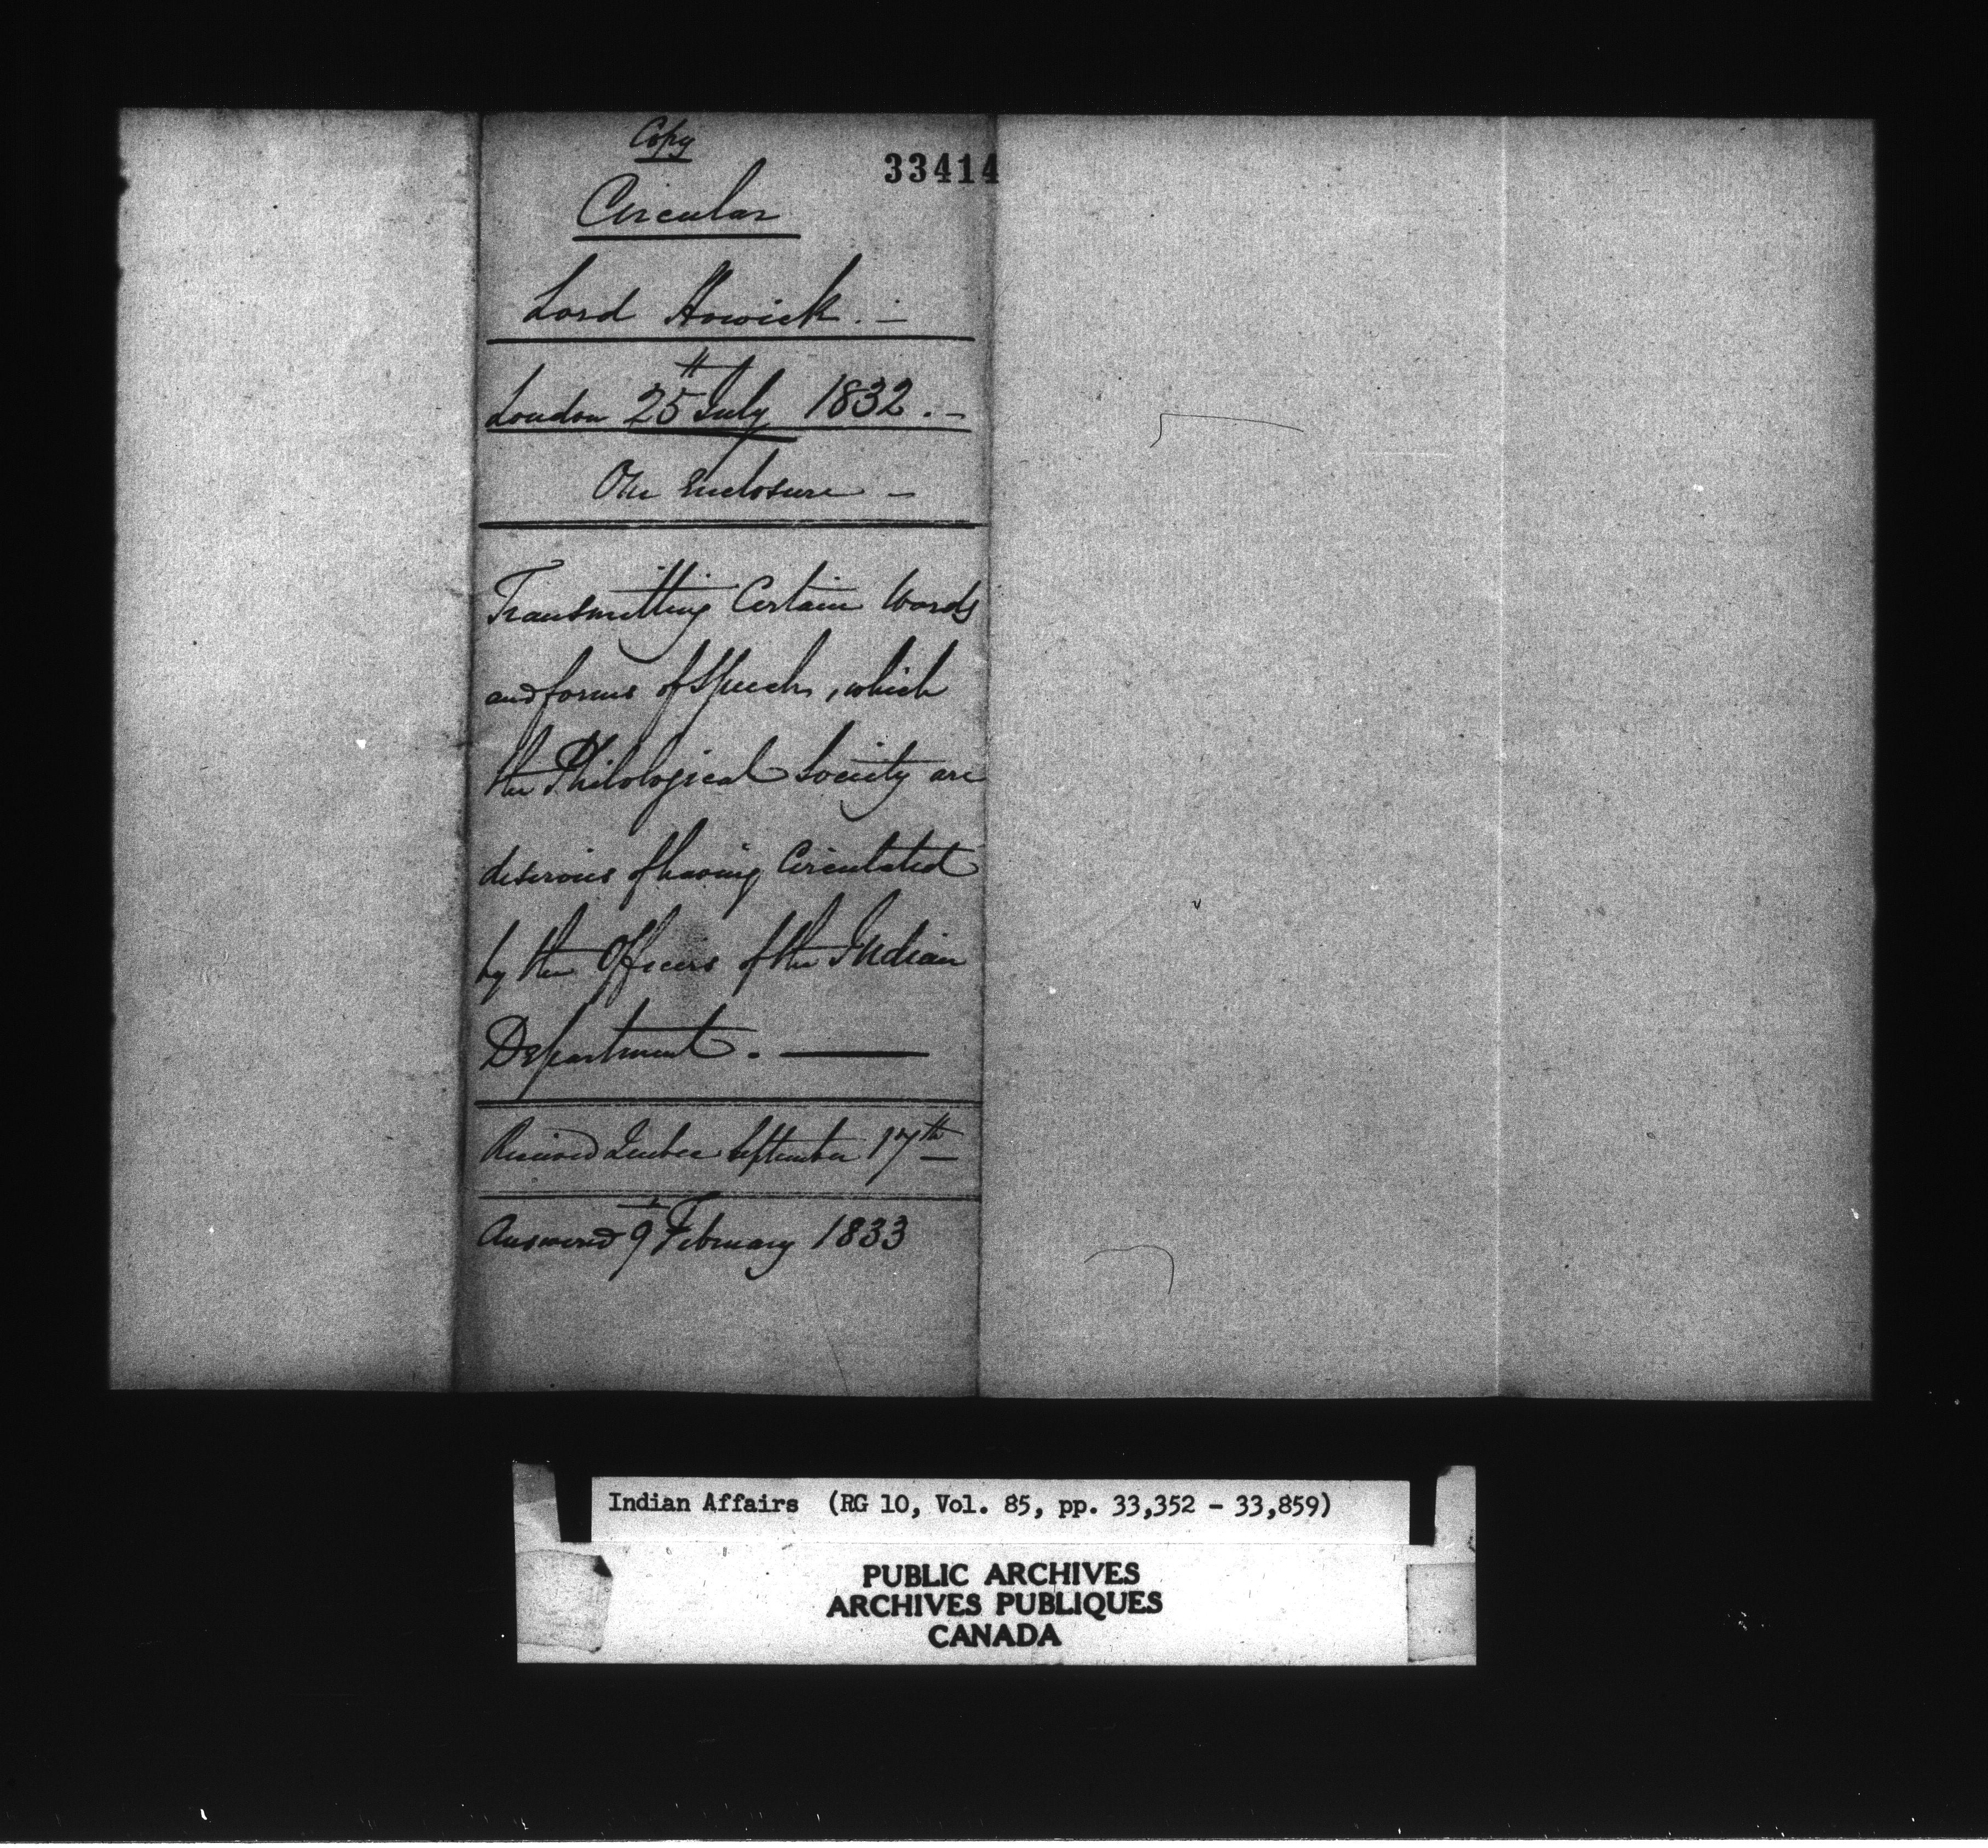 Copy
33414
Circular
Lord Howick. -
London 25th July 1832. -
One Enclosure -
Transmitting Certain Words
and forms of Speech, which
the Philological Society are
desirous of having Circulated
by the Officers of the Indian
Department. ———
Received Quebec September 17th
Answered 9th February 1833
Indian Affairs (RG 10, Vol. 85, pp. 33,352 - 33,859)
PUBLIC ARCHIVES
ARCHIVES PUBLIQUES
CANADA